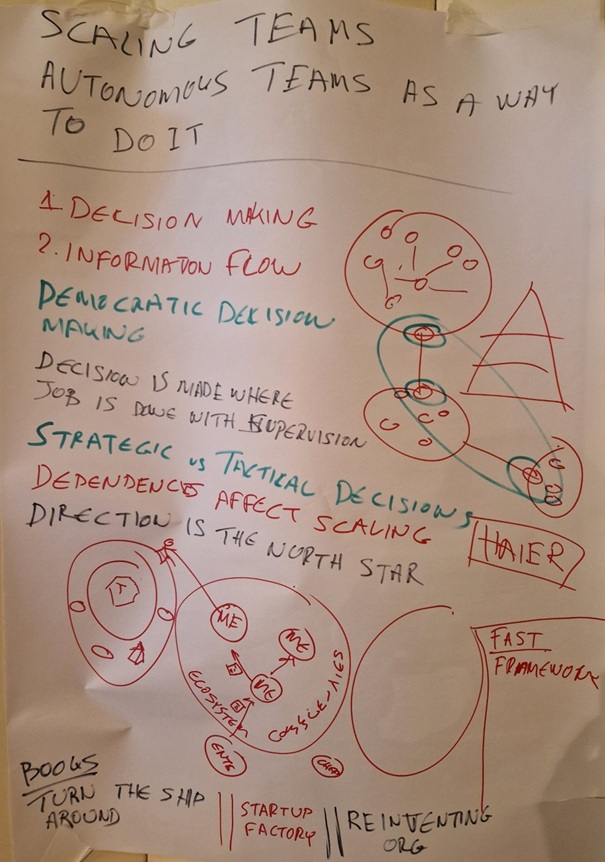 SCALING TEAMS
AUTONOMOUS TEAMS AS A WAY
TO DO IT
1. DECISION MAKING
2. INFORMATION FLOW
DEMOCRATIC DECISION
MAKING
DECISION IS MADE WHERE
JOB IS DONE WITH SUPERVISION
STRATEGIC vs TACTICAL DECISIONS
DEPENDENCIES AFFECT SCALING
DIRECTION IS THE NORTH STAR
HAIER
ME
ME
ME
ECOSYSTEM
FAST
FRAMEWORK
BOOKS
TURN THE SHIP
AROUND
STARTUP
FACTORY
REINVENTING
ORG